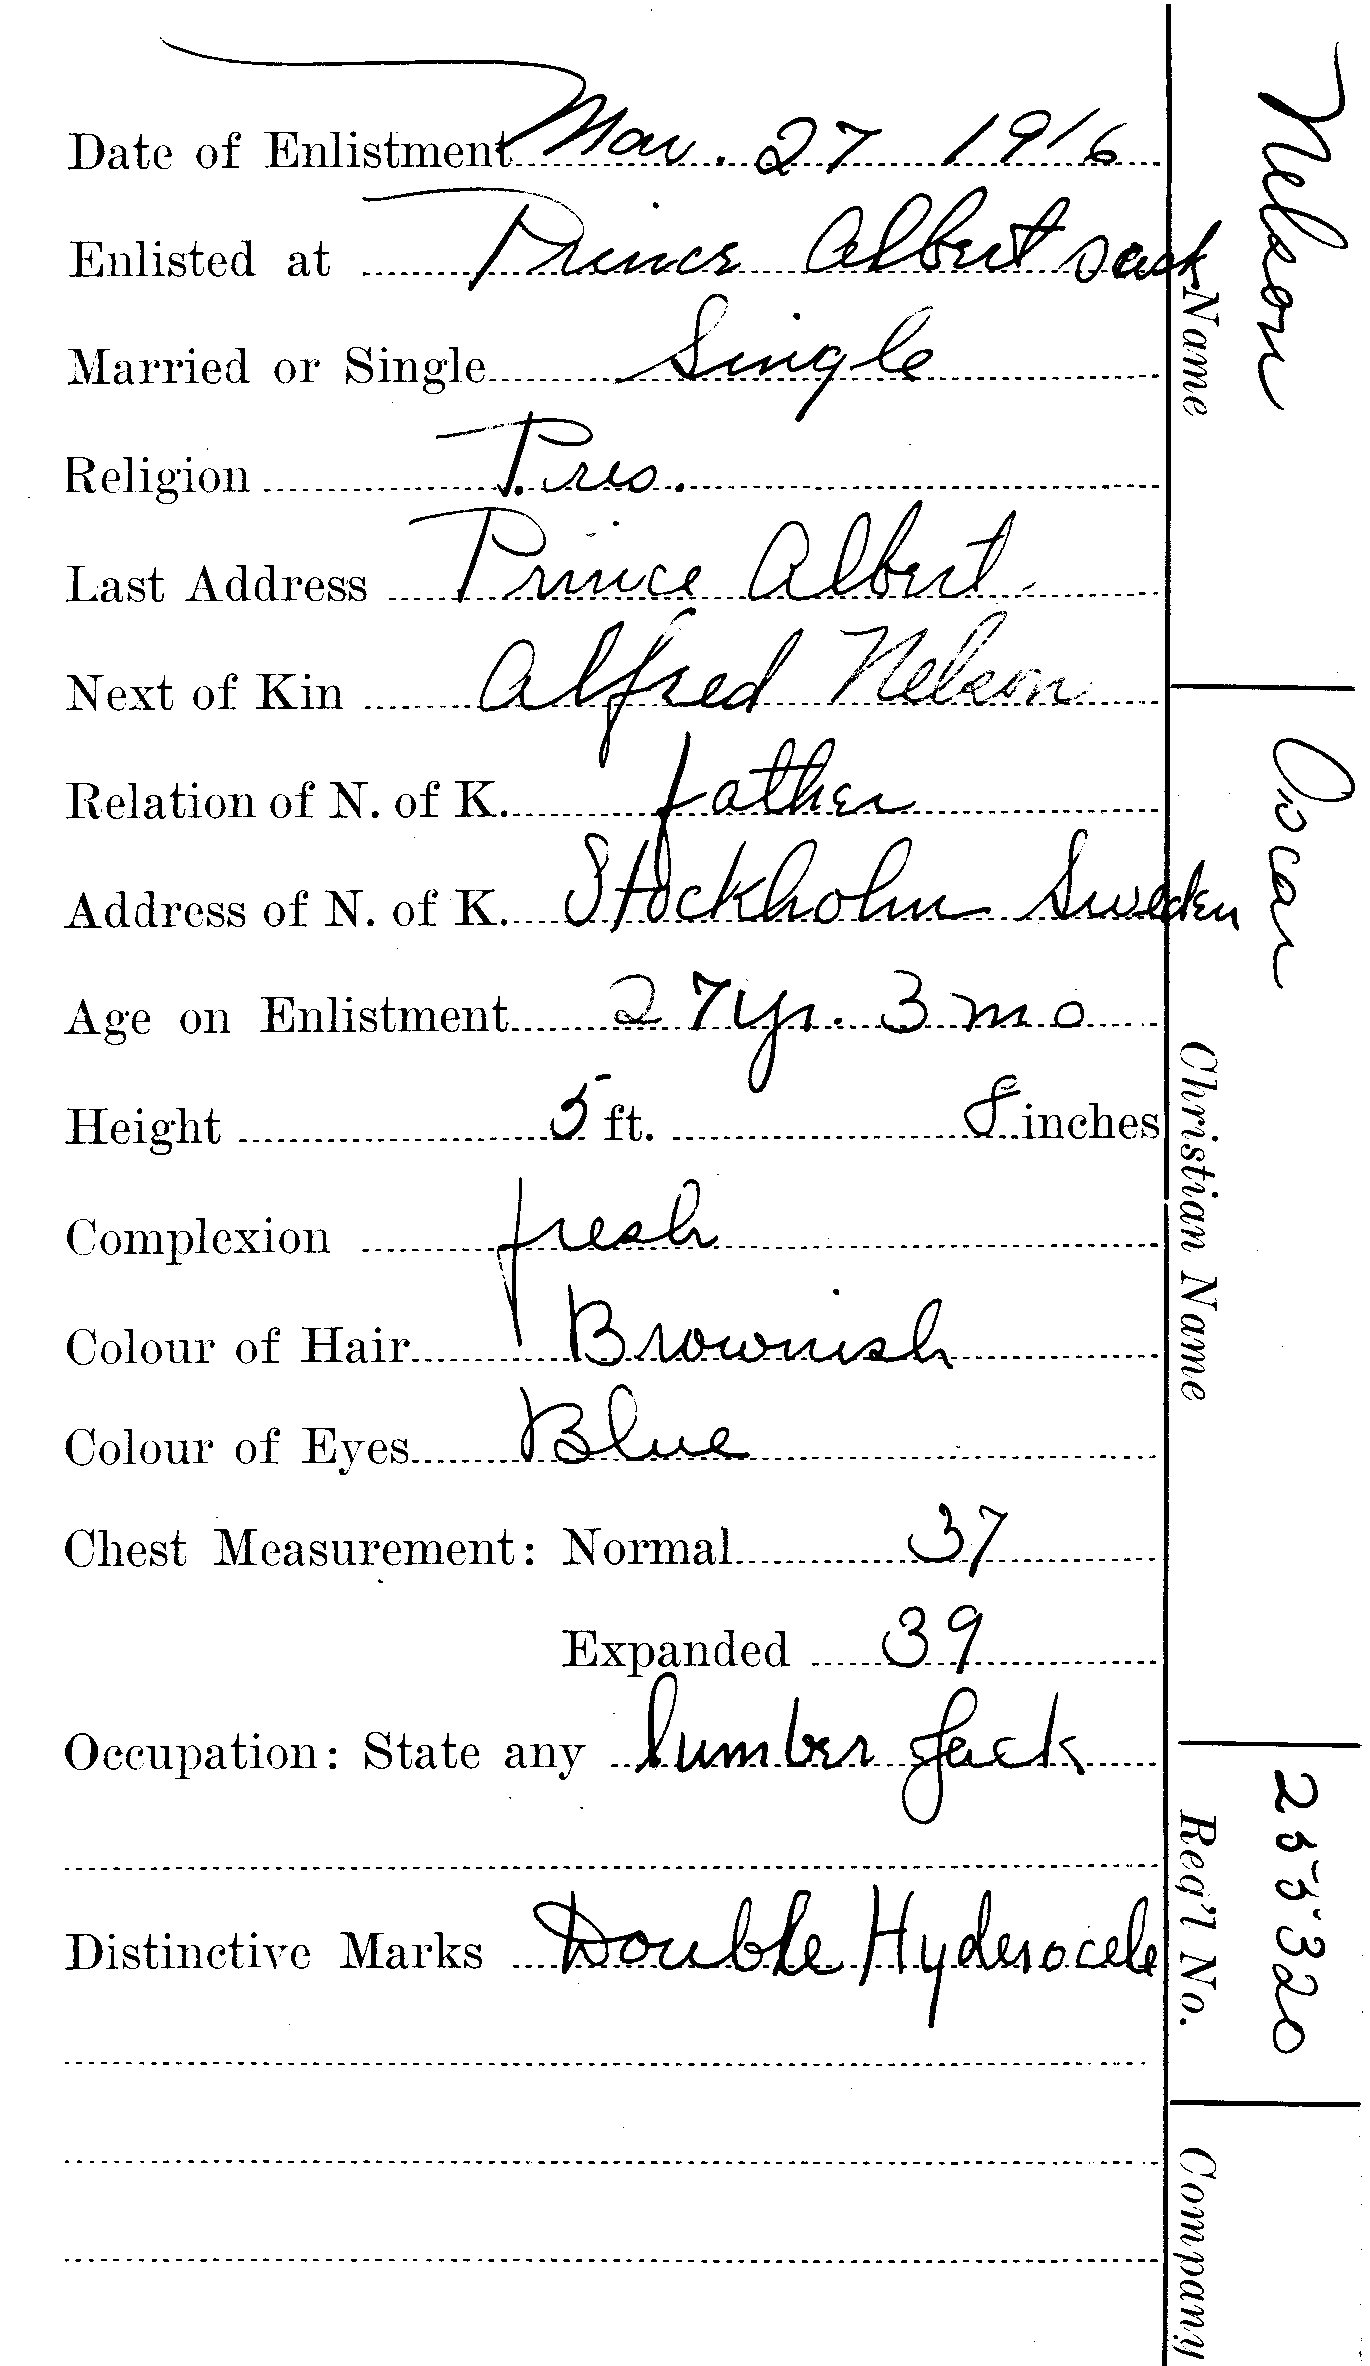 Date of Enlistment Mar. 27 1916
Enlisted at Prince Albert Sask
Married or Single Single
Religion Pres.
Last Address Prince Albert
Next of Kin Alfred Nelson
Relation of N. of K. father
Address of N. of K. Stockholm Sweden
Age on Enlistment 27 yr. 3 mo
Height 5 ft. 8 inches
Complexion fresh
Colour of Hair Brownish
Colour of Eyes Blue
Chest Measurement: Normal 37
Expanded 39
Occupation: State any lumber Jack
Distinctive Marks Double Hyderocele
Nelson
Name
Oscar
Christian Name
255320
Reg'l No.
Company